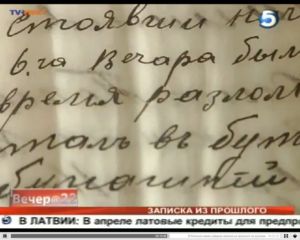 TVNET
5
стоявший
6.га вечера был
время разлом
талъ въ бут
бумажній
Вечер@22
ЗАПИСКА ИЗ ПРОШЛОГО
В ЛАТВИИ: В апреле латовые кредиты для предпр